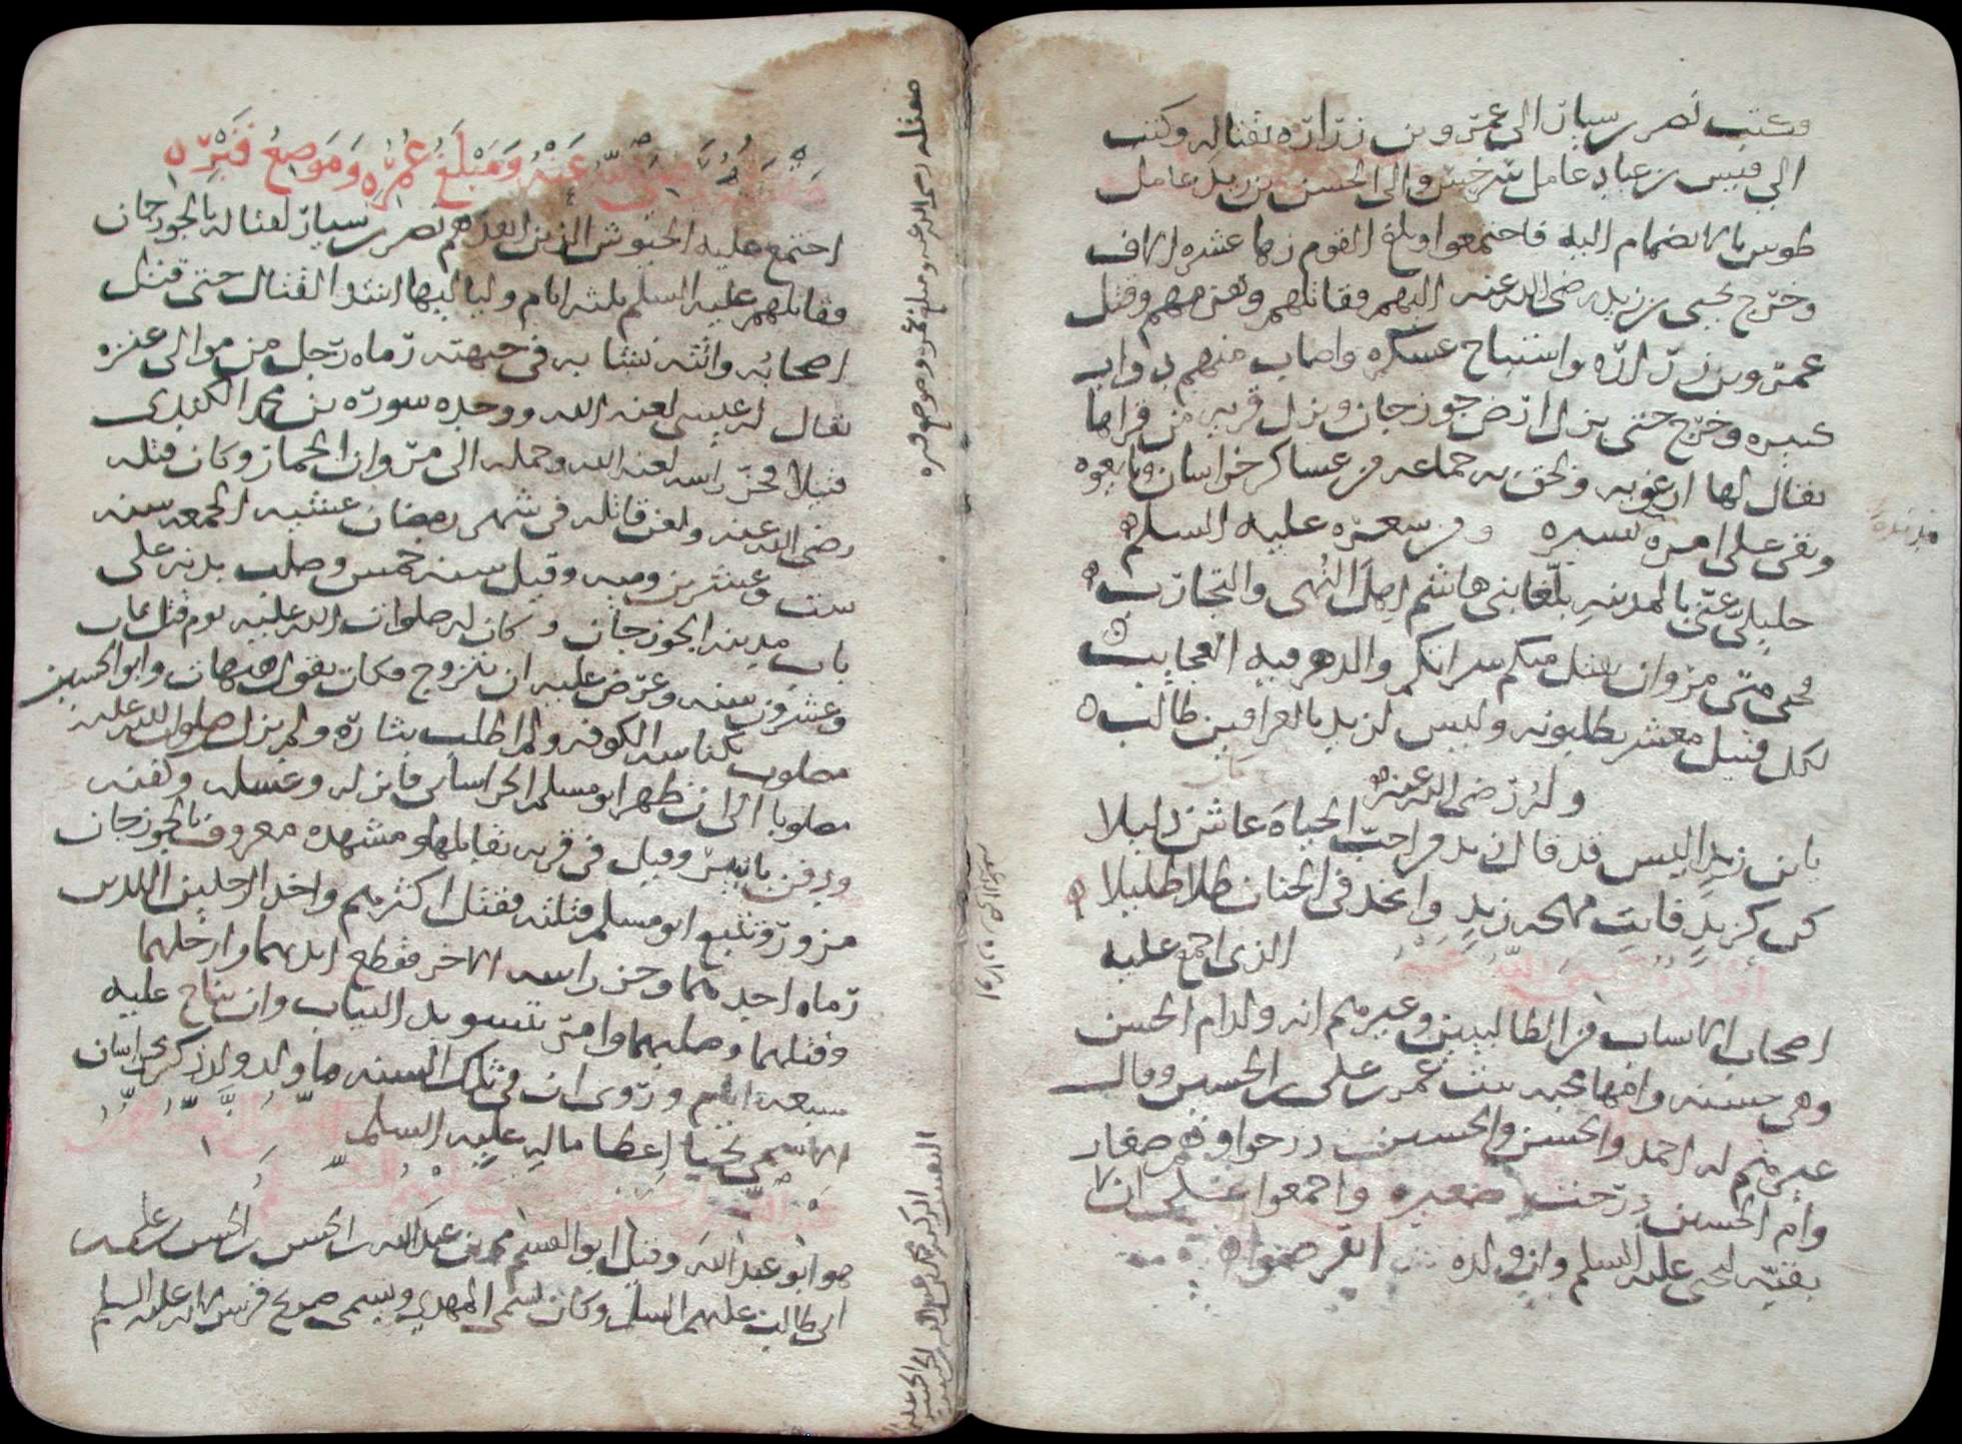 وكتب نصر بن سيار الى عمرو بن زراره بقتاله وكتب
الي قيس بن عباد عامل سرخس والى الحسن بن زيد عامل
طوس بالانضمام اليه فاجتمعوا وبلغ القوم زها عشره الاف
وخرج يحيى بن زيد رضى الله عنه اليهم فقاتلهم وهزمهم وقتل
عمرو بن زراره واستباح عسكره واصاب منهم دواب
كثيره وخرج حتى نزل ارض جوزجان ونزل قريه من قراها
يقال لها ارغويه ولحق به جماعه من عساكر خراسان وبايعوه
وبقى على امره يسيره ومن شعره عليه السلم
خليلي عنى بالمدينه بلغا بنى هاشم اهل النهى والتجارب
فحتى متى مروان يقتل منكم سراتكم والدهر فيه العجايب
لكل قتيل معشر يطلبونه وليس لزيد بالعراقين طالب
وله رضى الله عنه
يابن زيد اليس قد قال زيد من احب الحياه عاش ذليلا
كن كزيد فانت مهجه زيد واتخذ فى الجنان ظلا ظليلا
اولاده رضى الله عنه الذى اجمع عليه
اصحاب الانساب من الطالبيين وغيرهم انه ولد ام الحسن
وهى حسنه وامها محبه بنت عمر بن على بن الحسين وقال
غيرهم له احمد والحسن والحسين درجوا وهم صغار
وام الحسين درجت صغيره واجمعوا على ان لا
بقيه ليحيى عليه السلم وان ولده انقرضوا
اولاده رضى الله عنه
مقتله رضى الله عنه ومبلغ عمره وموضع قبره
مقتله رضى الله عنه ومبلغ عمره وموضع قبره
اجتمع عليه الجيوش الذين انفذهم نصر بن سيار لقتاله بالجوزجان
فقاتلهم عليه السلم ثلثه ايام ولياليها اشد القتال حتى قتل
اصحابه واتته نشابه فى جبهته رماه رجل من موالى عنزه
يقال له عيسى لعنه الله ووجده سوره بن محمد الكندى
قتيلا فحز راسه لعنه الله وحمله الى مروان الحمار وكان قتله
رضى الله عنه ولعن قاتله فى شهر رمضان عشيه الجمعه سنه
ست وعشرين وميه وقيل سنه خمس وصلب بدنه على
باب مدينه الجوزجان وكان له صلوات الله عليه يوم قتل ثمان
وعشرون سنه وعرض عليه ان يتزوج فكان يقول هيهات وابو الحسين
مصلوب بكناسه الكوفه ولم اطلب بثاره ولم يزل صلوات الله عليه
مصلوبا الى ان ظهر ابو مسلم الخراسانى فانزله وغسله وكفنه
ودفن بانبير وقيل فى قريه تقابلها ومشهده معروف بالجوزجان
مزور وتتبع ابو مسلم قتلته فقتل اكثرهم واخذ الرجلين اللذين
رماه احدهما وحز راسه الاخر فقطع ايديهما وارجلهما
وقتلهما وصلبهما وامر بتسويد الثياب وان يناح عليه
سبعه ايام وروى ان فى تلك السنه ما ولد ولد ذكر بخراسان
الا سمى يحيى اعظاما له عليه السلم
هو ابو عبد الله وقيل ابو القسم محمد بن عبد الله بن الحسن بن الحسن بن على بن
ابى طالب عليهم السلم وكان يسمى المهدى ويسمى صريح قريش لانه عليه السلم